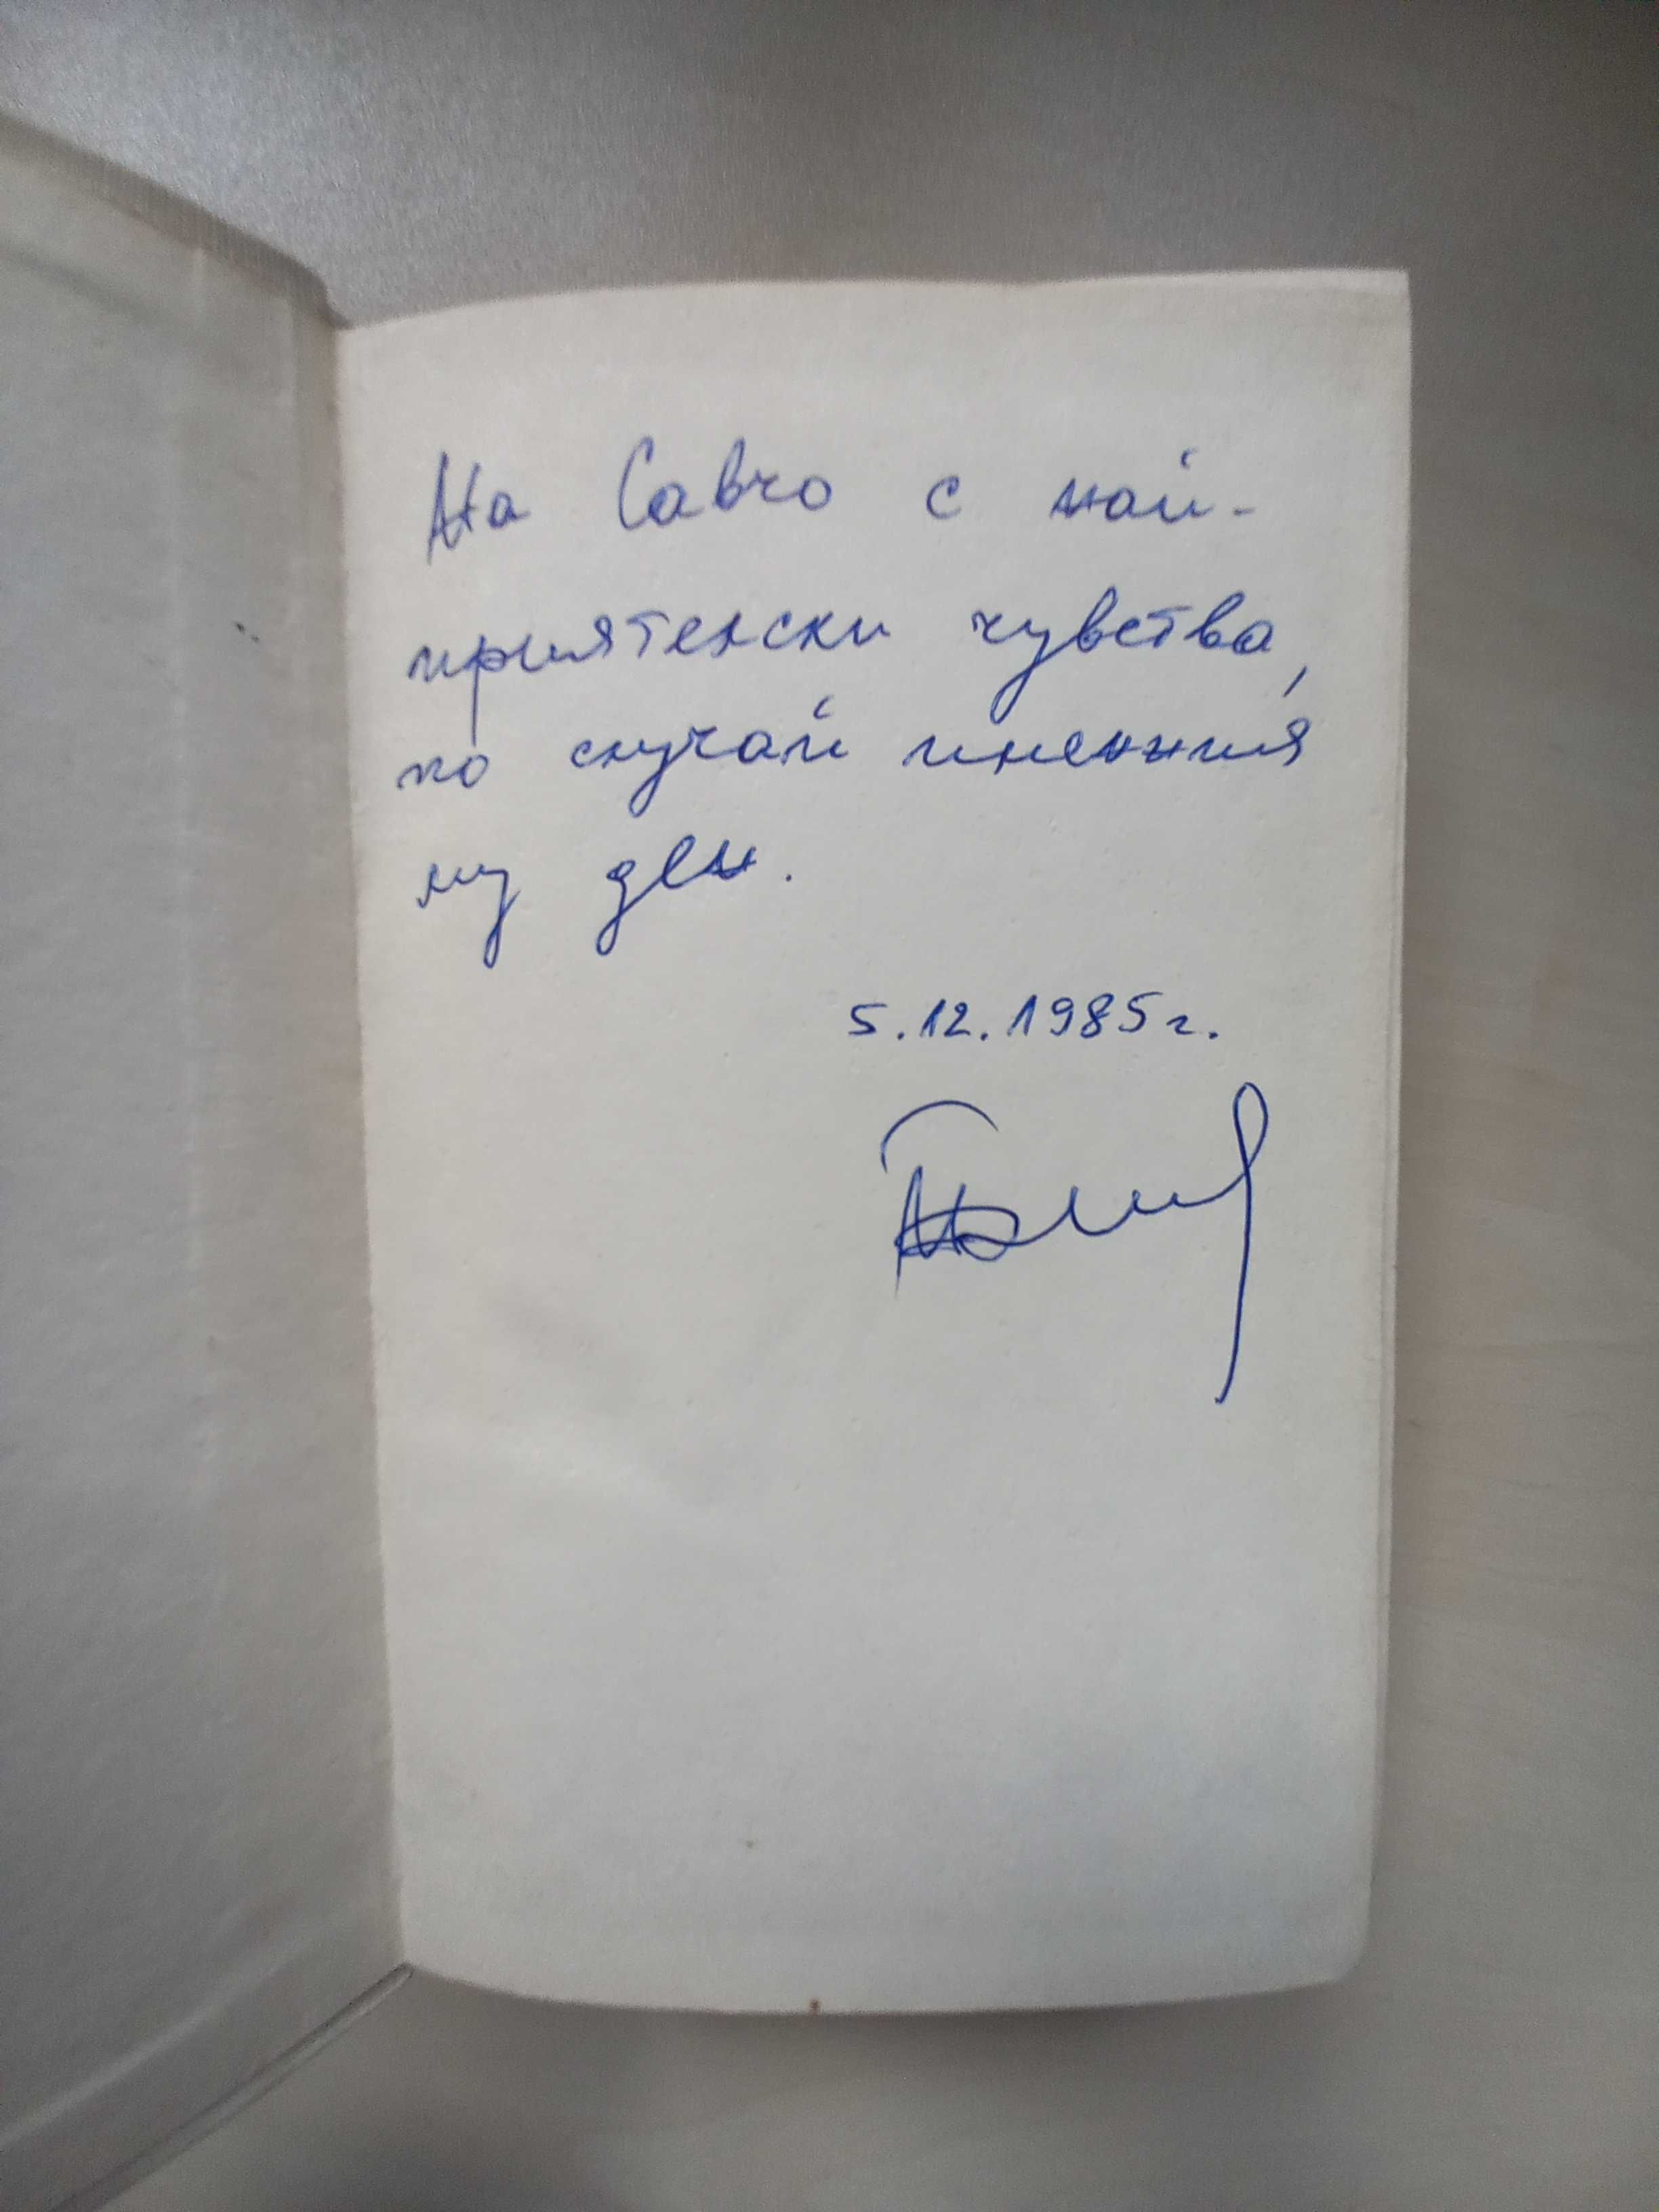 На Савчо с най-
приятелски чувства,
по случай именния
му ден.
5.12.1985г.